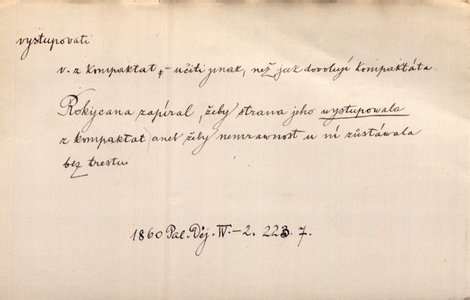 vystupovati
v. z kompaktat, – učiti jinak, než jak dovolují kompaktáta.
Rokycana zapíral, žeby strana jeho wystupowala
z kompaktat aneb žeby nemrawnost u ní zůstáwala
bez trestu
1860 Pal. Děj. IV.–2. 223. 7.